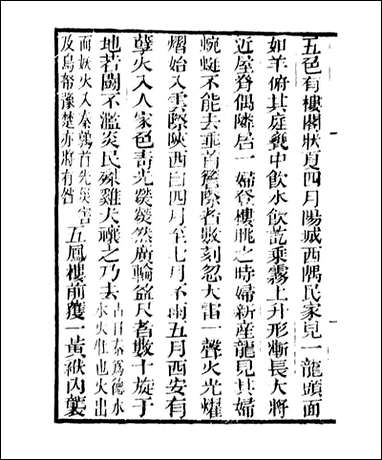 五色有樓閣狀夏四月陽城西隅民家見一龍頭面
如羊俯其庭甕中飲水飲訖乘霧上升形漸長大將
近屋脊偶隣居一婦登樓眺之時婦新産龍見其婦
蜿蜒不能去垂首簷際者數刻忽大雷一聲火光燿
熠始入雲際陝西自四月至七月不雨五月西安有
孽火入人家色青光熒熒然廣輪盈尺者數十旋于
地若鬭不濫炎民殊雞犬禳之乃去占曰秦爲德水水火牡也火出
而妖火入秦鶉首先災害及鳥帑豫楚亦將有咎五鳳樓前獲一黃袱內襲